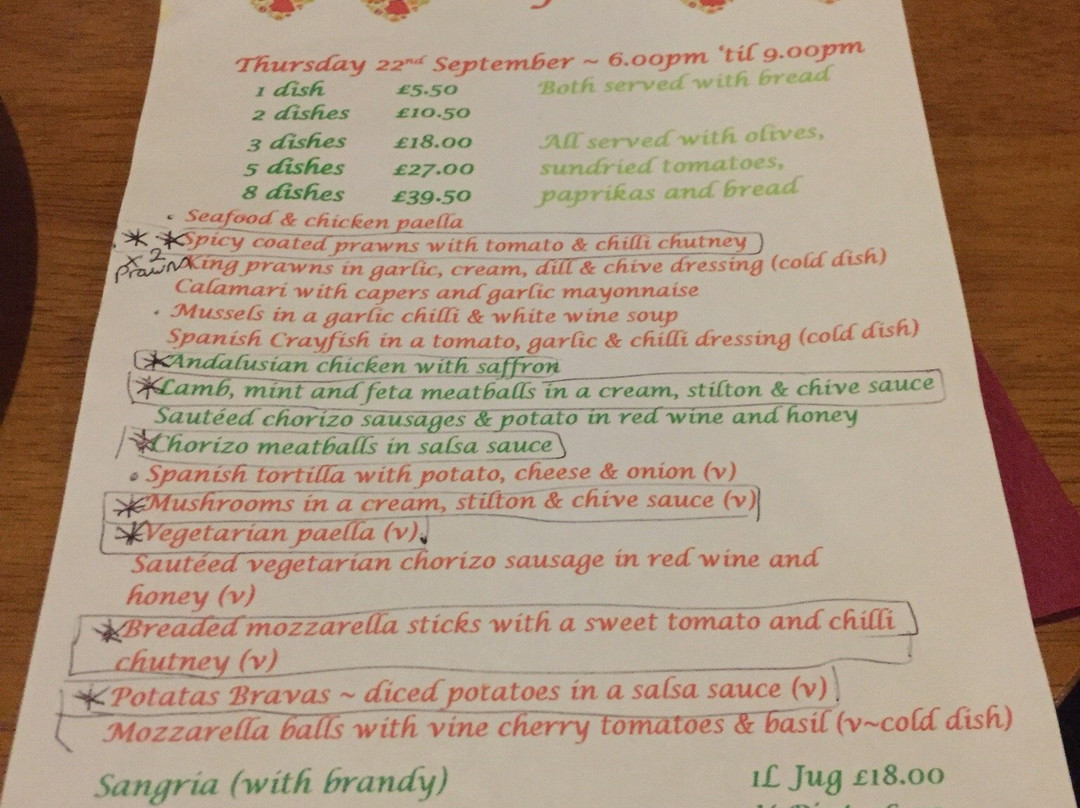 Thursday 22nd September ~ 6.00pm 'til 9.00pm
1 dish £5.50 Both served with bread
2 dishes £10.50
3 dishes £18.00 All served with olives,
5 dishes £27.00 sundried tomatoes,
8 dishes £39.50 paprikas and bread
Seafood & chicken paella
Spicy coated prawns with tomato & chilli chutney
x 2
prawns
King prawns in garlic, cream, dill & chive dressing (cold dish)
Calamari with capers and garlic mayonnaise
Mussels in a garlic chilli & white wine soup
Spanish Crayfish in a tomato, garlic & chilli dressing (cold dish)
Andalusian chicken with saffron
Lamb, mint and feta meatballs in a cream, stilton & chive sauce
Sautéed chorizo sausages & potato in red wine and honey
Chorizo meatballs in salsa sauce
Spanish tortilla with potato, cheese & onion (v)
Mushrooms in a cream, stilton & chive sauce (v)
Vegetarian paella (v).
Sautéed vegetarian chorizo sausage in red wine and
honey (v)
Breaded mozzarella sticks with a sweet tomato and chilli
chutney (v)
Potatas Bravas ~ diced potatoes in a salsa sauce (v)
Mozzarella balls with vine cherry tomatoes & basil (v~cold dish)
Sangria (with brandy) 1L Jug £18.00